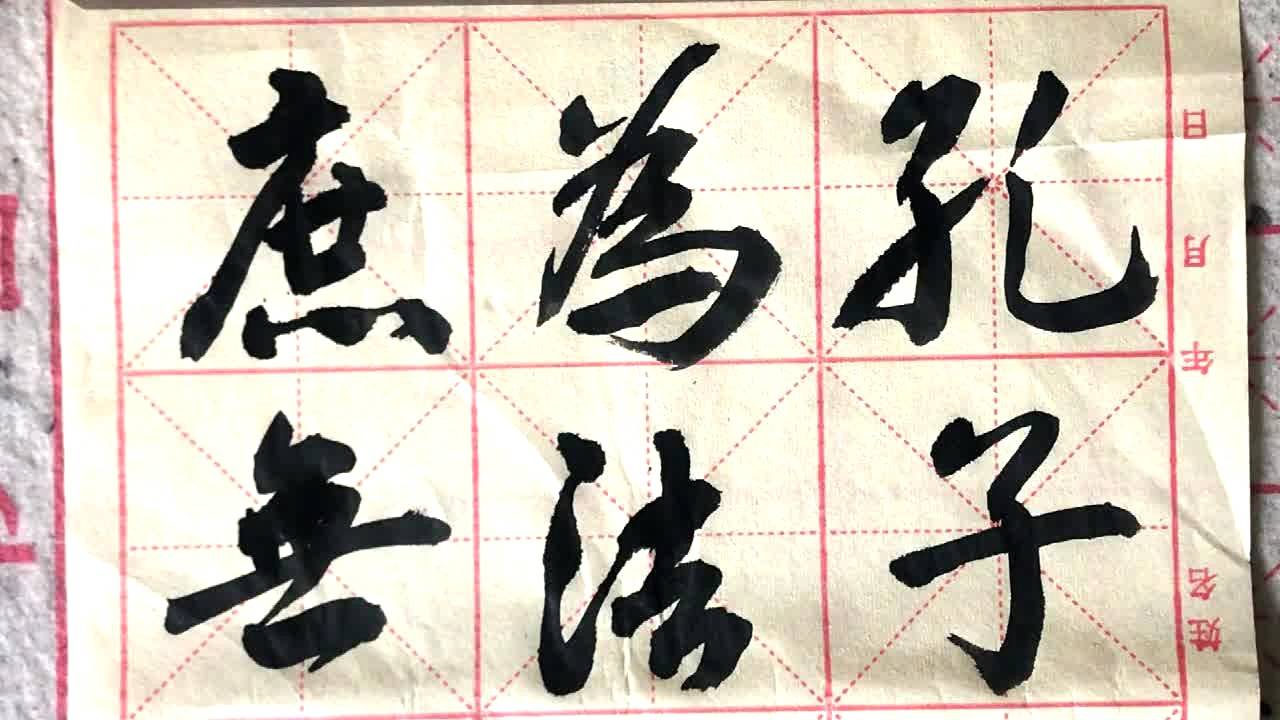 孔子
為法
庶無
姓名 年 月 日